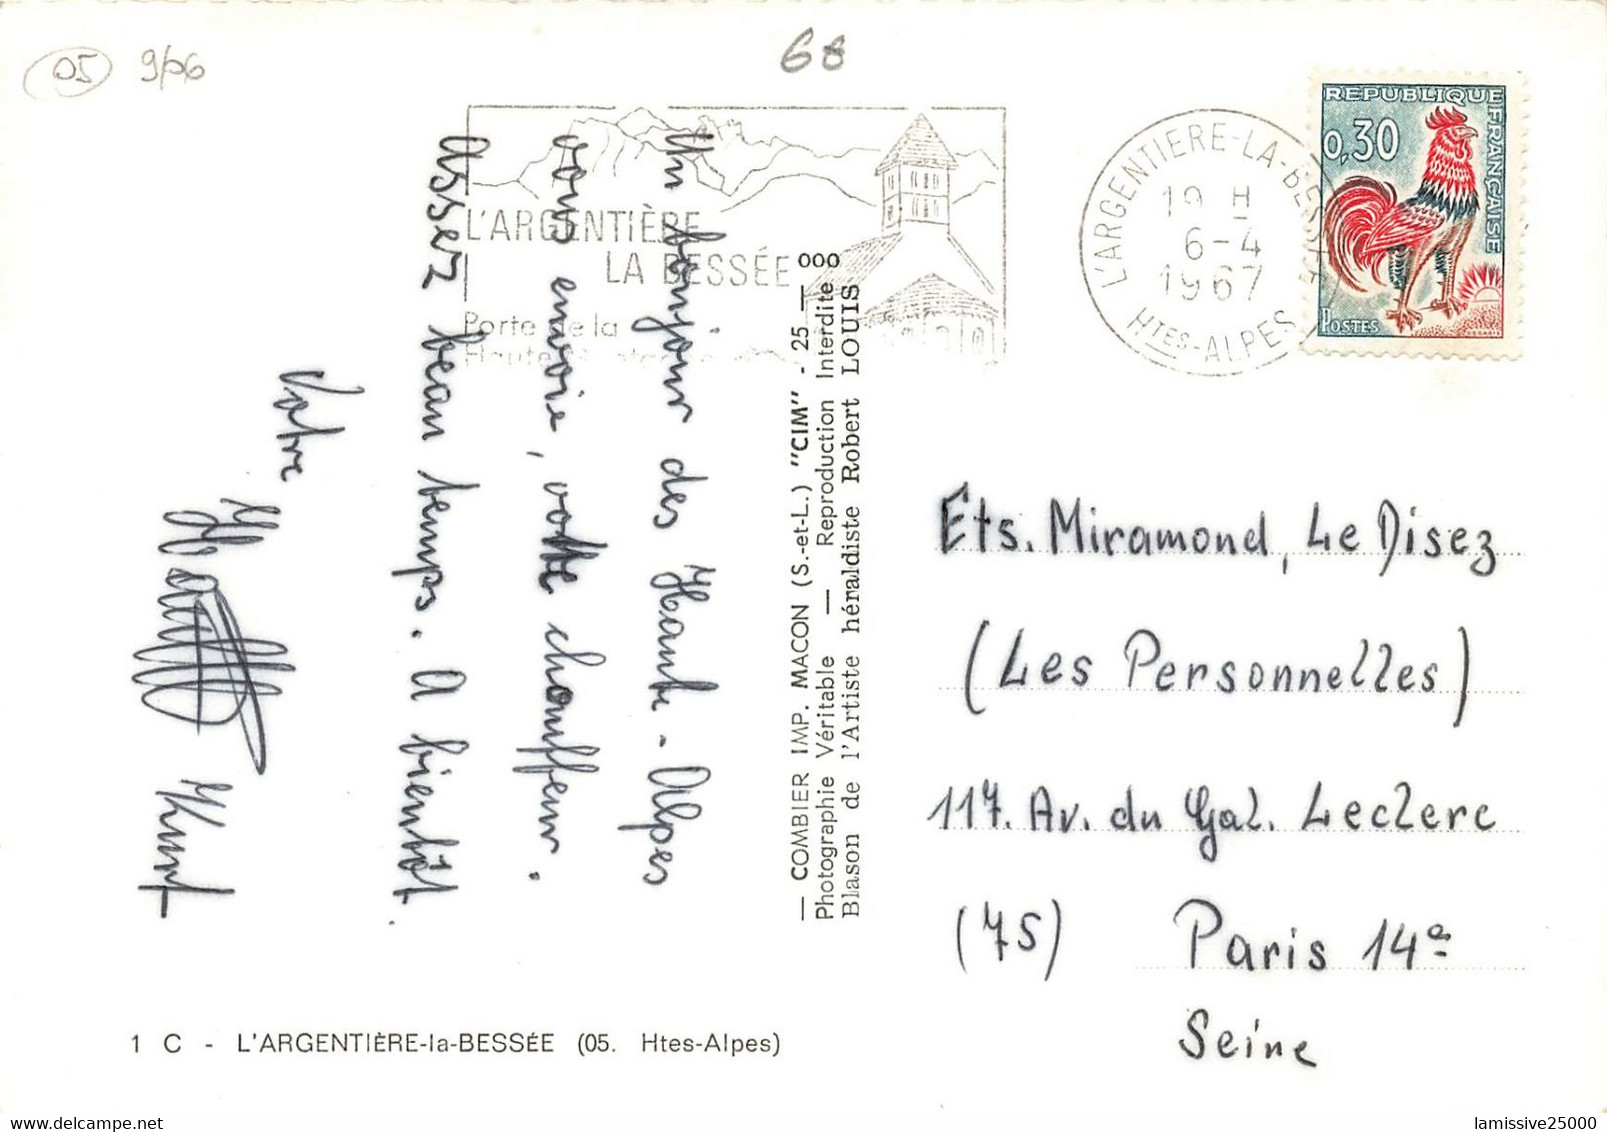 05 9/06
68
L'ARGENTIÈRE
LA BESSÉE
Porte de la
L'ARGENTIERE-LA-BESSEE
19 H
6-4
1967
HTES-ALPES
REPUBLIQUE FRANÇAISE
0,30
POSTES
DECARIS
Un bonjour des Haute-Alpes
vous envoie, votre chauffeur.
Assez beau temps. A bientôt.
Votre
Kurt
— COMBIER IMP. MACON (S.-et-L.) "CIM" - 25 — ooo
Photographie Véritable — Reproduction Interdite
Blason de l'Artiste héraldiste Robert LOUIS
Ets. Miramond, Le Disez
(Les Personnelles)
117. Av. du Gal. Leclerc
(75) Paris 14e
Seine
1 C - L'ARGENTIÈRE-la-BESSÉE (05. Htes-Alpes)
lamissive25000